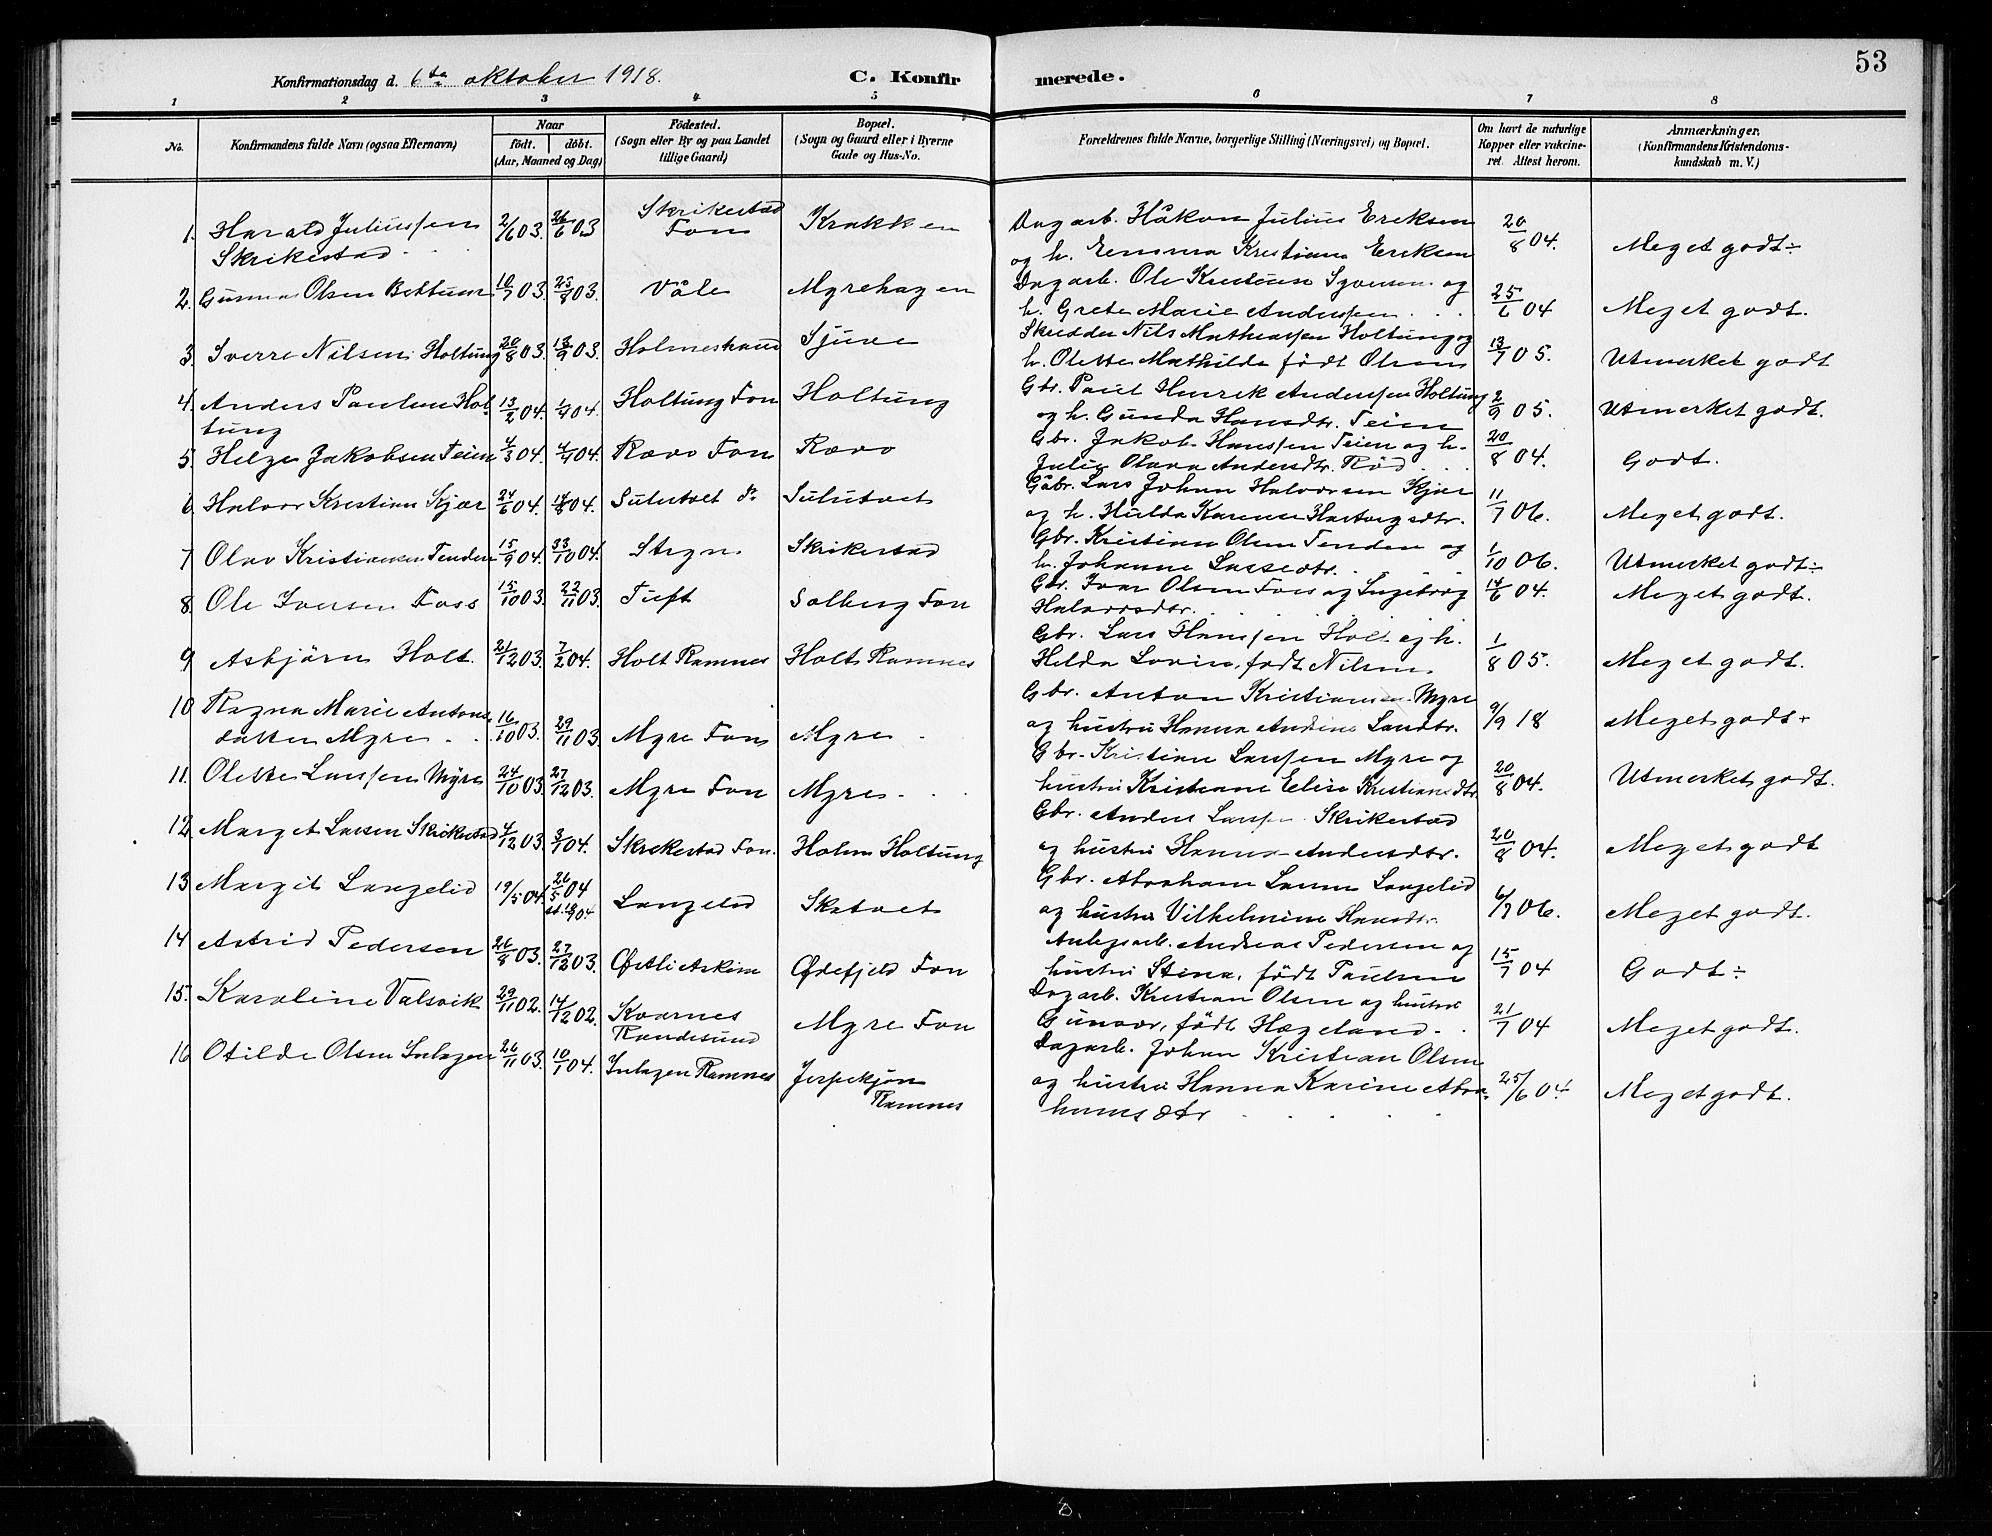 53
Konfirmationsdag d. 6te oktober 1918.
C. Konfirmerede.
1 2 3 4 5 6 7 8
No.
Konfirmandens fulde Navn (ogsaa Efternavn)
Naar
født. døbt.
(Aar, Maaned og Dag)
Fødested.
(Sogn eller By og paa Landet
tillige Gaard)
Bopæl.
(Sogn og Gaard eller i Byerne
Gade og Hus-No.
Forældrenes fulde Navne, borgerlige Stilling (Næringsvei) og Bopæl.
Om havt de naturlige
Kopper eller vakcine-
ret. Attest herom.
Anmærkninger.
(Konfirmandens Kristendoms-
kundskab m. V.)
1. Harald Juliussen 2/6 03. 26/6 03 Skrikestad Krakken Dagarb. Håkon Julius Eriksen 20/8 04. Meget godt ÷
Skrikestad Fon og h. Emma Kristiane Eriksen
2. Gunnar Olsen Bettum 10/7 03. 03. Våle Myrehagen Dagarb. Ole Kristian og 25/6 04 Meget godt.
h. Grete Marie Anderssen
3. Sverre Nilsen Holtung 20/8 03. 13/9 03. Holmestrand Skredder Nils Mathiassen Holtung og 13/7 05. Utmerket godt
h. Olette Mathilde født Olsen
4. Anders Paulsen Hol 13/2 04. 1/4 04. Holtung Fon Holtung Gbr. Paul Henrik Anderssen Holtung 2/9 05. Utmerket godt.
tung og h. Gunda Hansdtr. Teien
5. Helge Jakobsen Teien 4/3 04. 4/4 04. Rævo Fon Rævo Gbr. Jakob Hanssen Teien og h. 20/8 04. Godt.
Julie Olava Andersdtr. Rød
6. Halvor Kristian Kjær 24/6 04. 14/8 04. Sulutvet Gåbr. Lars Johan Halvorsen Kjær 11/7 06. Meget godt.
og h. Hulda Karine
7 Olav Kristiansen Tenden 15/9 04. 04. Skrikestad Gbr. Kristian Olsen Tenden og 1/10 06. Utmerket godt ÷
h. Johanne Lassedtr.
8. Ole Iversen Foss 15/10 03. 22/11 03. Tuft Solberg Fon Gbr. Ivar Olsen Foss og Ingeborg 14/6 04. Meget godt.
Halvorsdtr.
9 Asbjørn Holt. 21/12 03. 7/2 04. Holt Ramnes Holt Ramnes Gbr. Lars Hanssen Holt og h. 1/8 05. Meget godt.
Helda Lovise, født Nilsen
10 Ragna Marie Antons 16/10 03. 29/11 03. Myre Fon Myre Gbr. Anton Kristiansen Myre 9/9 18 Meget godt +
datter Myre og hustru Hanna Andrine Larsdtr.
11. Olette Larssen Myre 24/10 03. 27/12 03. Myre Fon Myre Gbr. Kristian Larssen Myre og 20/8 04. Utmerket godt.
hustru Kristiane Elise Kristiansdtr.
12. Marget Larsen Skrikestad 4/12 03. 3/1 04. Skrikestad Fon. Holm Holtung Gbr. Anders Larssen Skrikestad 20/8 04. Meget godt
og hustru Hanna Andersdtr.
13 Margit Langelid 19/5 04. 26/5 04 Langelid Skatvet Gbr. Abraham Langelid 6/7 06. Meget godt.
og hustru Vilhelmine Hansdtr.
14 Astrid Pedersen 26/8 03. 27/12 03. Østli Askim Ødefjeld Fon Anlegsarb. Andreas Pedersen og 15/7 04 Godt ÷
hustru Stina, født Paulsen
15. Karoline Valsvik 29/11 02. 14/12 02. Kvarnes Myre Fon Dagarb. Kristian Olsen og hustru 21/7 04 Meget godt.
Randesund Gunvor, født Hægeland.
16 Otilde Olsen Inlagen 26/11 03. 10/1 04. Inlagen Ramnes Jerpekjøn Dagarb. Johan Kristian Olsen 25/6 04. Meget godt.
Ramnes og hustru Hanna Karine Abra-
hamsdtr